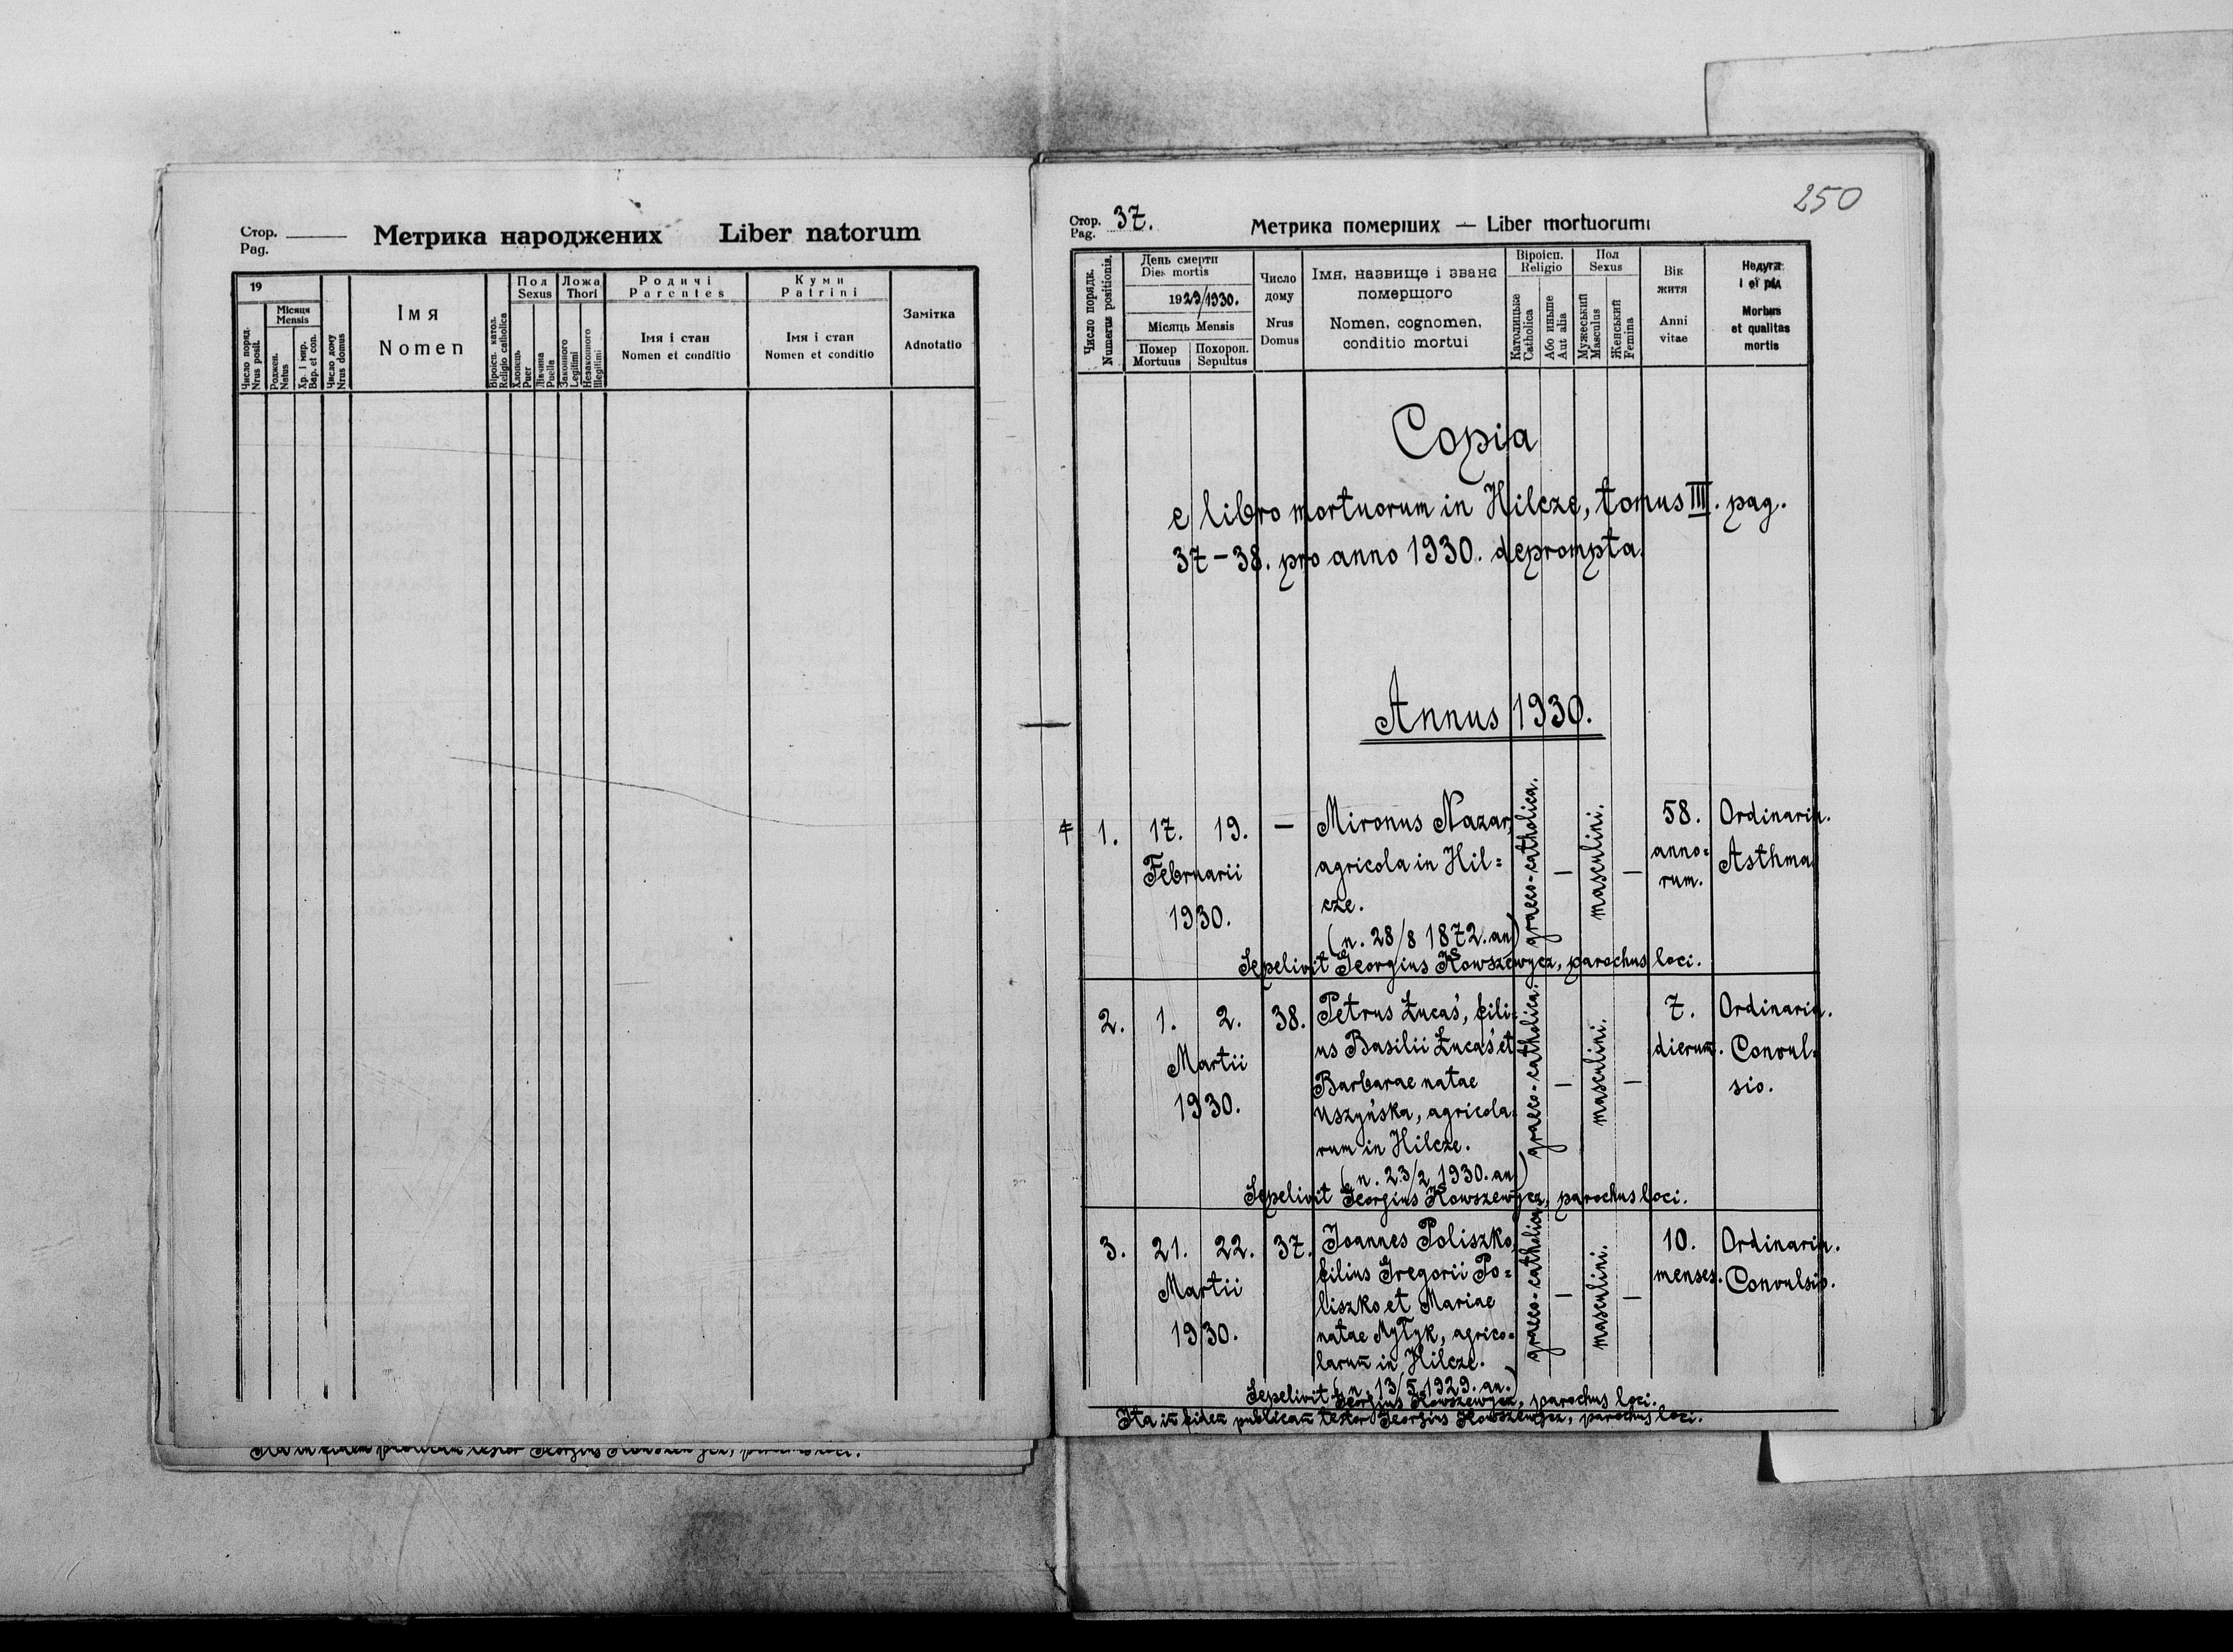 Стор.
Pag.
Метрика народжених Liber natorum
19
Число поряд.
Nrus posit.
Місяця
Mensis
Роджен.
Natus
Хр. і мир.
Bap. et con.
Число дому
Nrus domus
Імя
Nomen
Віроісп. катол.
Religio catholica
Пол
Sexus
Хлопець
Puer
Дівчина
Puella
Ложа
Thori
Законного
Legitimi
Незаконного
Illegitimi
Родичі
Parentes
Імя і стан
Nomen et conditio
Куми
Patrini
Імя і стан
Nomen et conditio
Замітка
Adnotatio
250
Стор.
Pag. 37.
Метрика померших — Liber mortuorum
Число порядк.
Numerus positionis.
День смерти
Dies mortis
1929/1930.
Місяць Mensis
Помер
Mortuus
Похорон.
Sepultus
Число
дому
Nrus
Domus
Імя, назвище і званє
помершого
Nomen, cognomen,
conditio mortui
Віроісп.
Religio
Католицьке
Catholica
Або иньше
Aut alia
Пол
Sexus
Мужеський
Masculus
Женський
Femina
Вік
житя
Anni
vitae
Недуга
і єї рід
Morbus
et qualitas
mortis
Copia
e libro mortuorum in Hilcze, tomus III. pag.
37-38. pro anno 1930. deprompta.
Annus 1930.
1. 17. 19. — Mironus Nazar, 58. Ordinaria.
Februarii agricola in Hil= anno= Asthma.
1930. cze. graeco-catholica. — masculini. — rum.
(n. 28/8 1872. an)
Sepelivit Georgius Kowszewycz, parochus loci.
2. 1. 2. 38. Petrus Łucaś, fili= 7. Ordinaria.
Martii us Basilii Łucaś et dierum. Convul=
1930. Barbarae natae graeco-catholica. — masculini. — sio.
Uszyńska, agricola=
rum in Hilcze.
(n. 23/2 1930. an)
Sepelivit Georgius Kowszewycz, parochus loci.
3. 21. 22. 37. Joannes Poliszko, 10. Ordinaria.
Martii filius Gregorii Po= menses. Convulsio.
1930. liszko et Mariae graeco-catholica. — masculini. —
natae Mytyk, agrico=
larum in Hilcze.
(n. 13/5 1929. an.)
Sepelivit Georgius Kowszewycz, parochus loci.
Ita in fidem publicam testor Georgius Kowszewycz, parochus loci.
Ita in fidem publicam testor Georgius Kowszewycz, parochus loci.